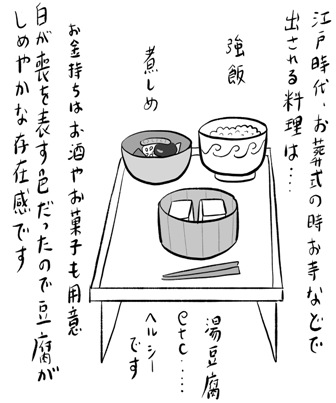 江戸時代、お葬式の時お寺などで
出される料理は‥‥
強飯
煮しめ
湯豆腐
etc……
ヘルシー
です
お金持ちはお酒やお菓子も用意
白が喪を表す色だったので豆腐が
しめやかな存在感です